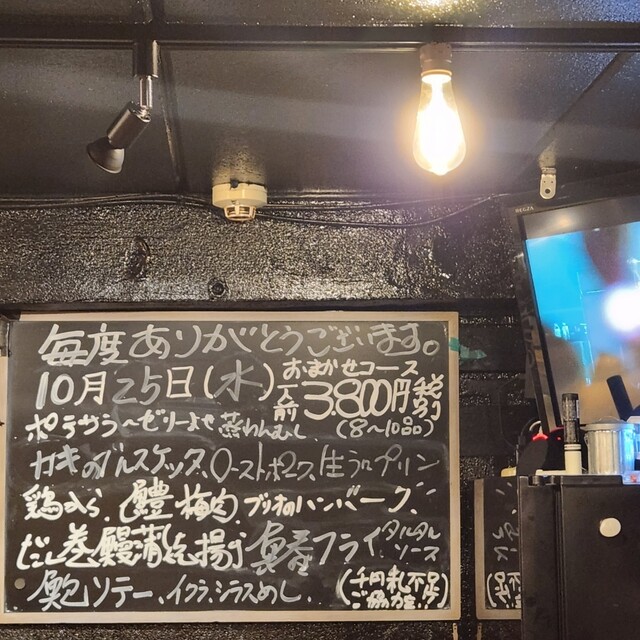 毎度ありがとうございます。
10月25日(水) おまかせコース
一人前 3.800円 税別
ポテサラ〜ゼリーよせ 茶わんむし、(8〜10品)
カキのブルスケッタ、ローストポーク、生うにプリン
鶏から、鱧梅肉、ブリオのハンバーグ、
だし巻、鰻蒲焼 揚げ 真フライ タルタルソース
鮑ソテー、イクラ、シラスめし、(千円札不足 ご協力を!!)
REGZA